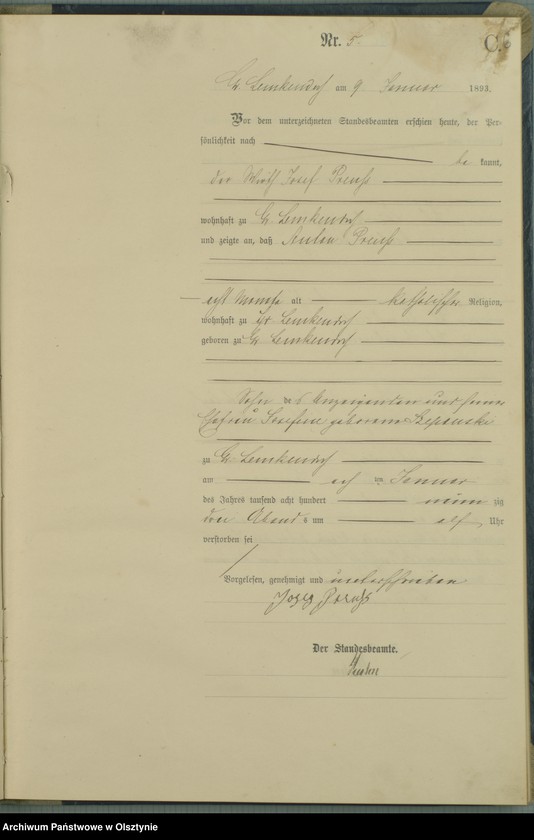 Nr. 5.
C.
Gr. Lemkendorf am 9 Januar 1893.
Vor dem unterzeichneten Standesbeamten erschien heute, der Per-
sönlichkeit nach
be kannt,
der Wirth Josef Preuß
wohnhaft zu Gr. Lemkendorf
und zeigte an, daß Anton Preuß
acht Monate alt katholischer Religion,
wohnhaft zu Gr Lemkendorf
geboren zu Gr. Lemkendorf
Sohn des Anzeigenden und seiner
Ehefrau Josefine geborenen
zu Gr. Lemkendorf
am acht ten Januar
des Jahres tausend acht hundert neun zig
drei Abends um elf Uhr
verstorben sei
Vorgelesen, genehmigt und unterschrieben
Josef Preuß
Der Standesbeamte.
Archiwum Państwowe w Olsztynie